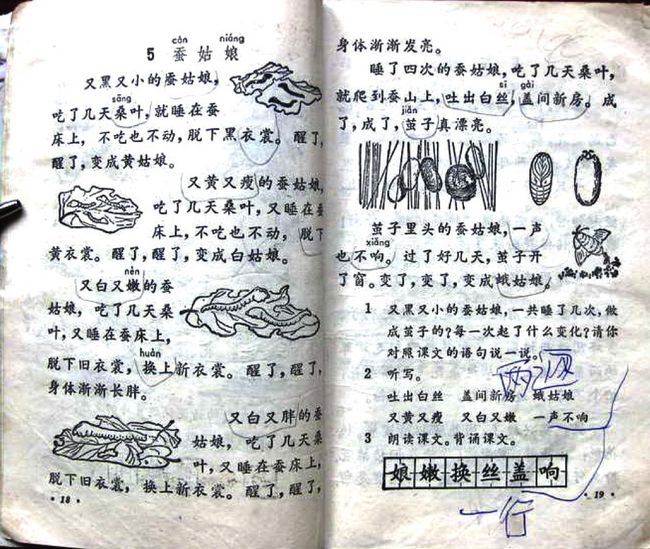 cán niáng
5 蚕姑娘
又黑又小的蚕姑娘，
sāng
吃了几天桑叶，就睡在蚕
床上，不吃也不动，脱下黑衣裳。醒了，
醒了，变成黄姑娘。
又黄又瘦的蚕姑娘，
吃了几天桑叶，又睡在蚕
床上，不吃也不动，脱下
黄衣裳。醒了，醒了，变成白姑娘。
nèn
又白又嫩的蚕
姑娘，吃了几天桑
叶，又睡在蚕床上，
huàn
脱下旧衣裳，换上新衣裳。醒了，醒了，
身体渐渐长胖。
又白又胖的蚕
姑娘，吃了几天桑
叶，又睡在蚕床上，
脱下旧衣裳，换上新衣裳。醒了，醒了，
·18·
身体渐渐发亮。
睡了四次的蚕姑娘，吃了几天桑叶，
sī gài
就爬到蚕山上，吐出白丝，盖间新房。成
jiǎn
了，成了，茧子真漂亮。
茧子里头的蚕姑娘，一声
xiǎng
也不响。过了好几天，茧子开
了窗。变了，变了，变成蛾姑娘。
1 又黑又小的蚕姑娘，一共睡了几次，做
成茧子的？每一次起了什么变化？请你
对照课文的语句说一说。
2 听写。
两遍
吐出白丝 盖间新房 蛾姑娘
又黄又瘦 又白又嫩 一声不响
3 朗读课文。背诵课文。
娘嫩换丝盖响
·19·
一行